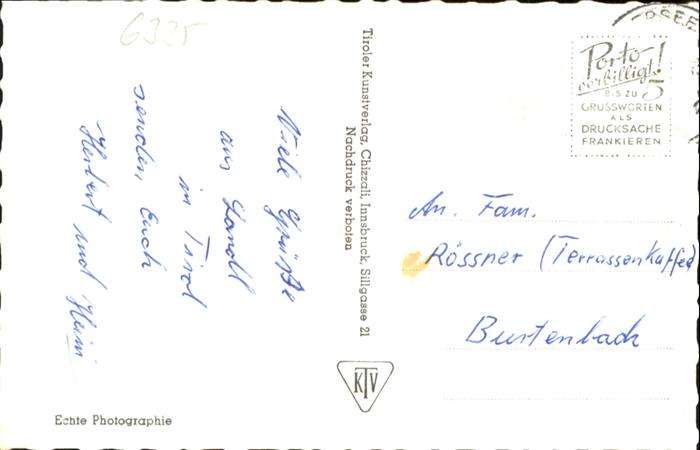 6335
Viele Grüße
aus Landl
in Tirol
senden Euch
Herbert und Heini
Echte Photographie
Tiroler Kunstverlag, Chizzali, Innsbruck, Sillgasse 21
Nachdruck verboten
KTV
Porto
verbilligt!
BIS ZU 5
GRUSSWORTEN
ALS
DRUCKSACHE
FRANKIEREN
An. Fam.
Rössner (Terrassenkaffee
Burtenbach